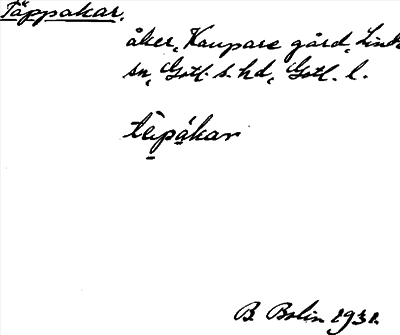 Täppakar,
åker, Kaupare gård, Linde
sn, Gotl. s. hd, Gotl. l.
tèpákar
B. Bolin 1931.